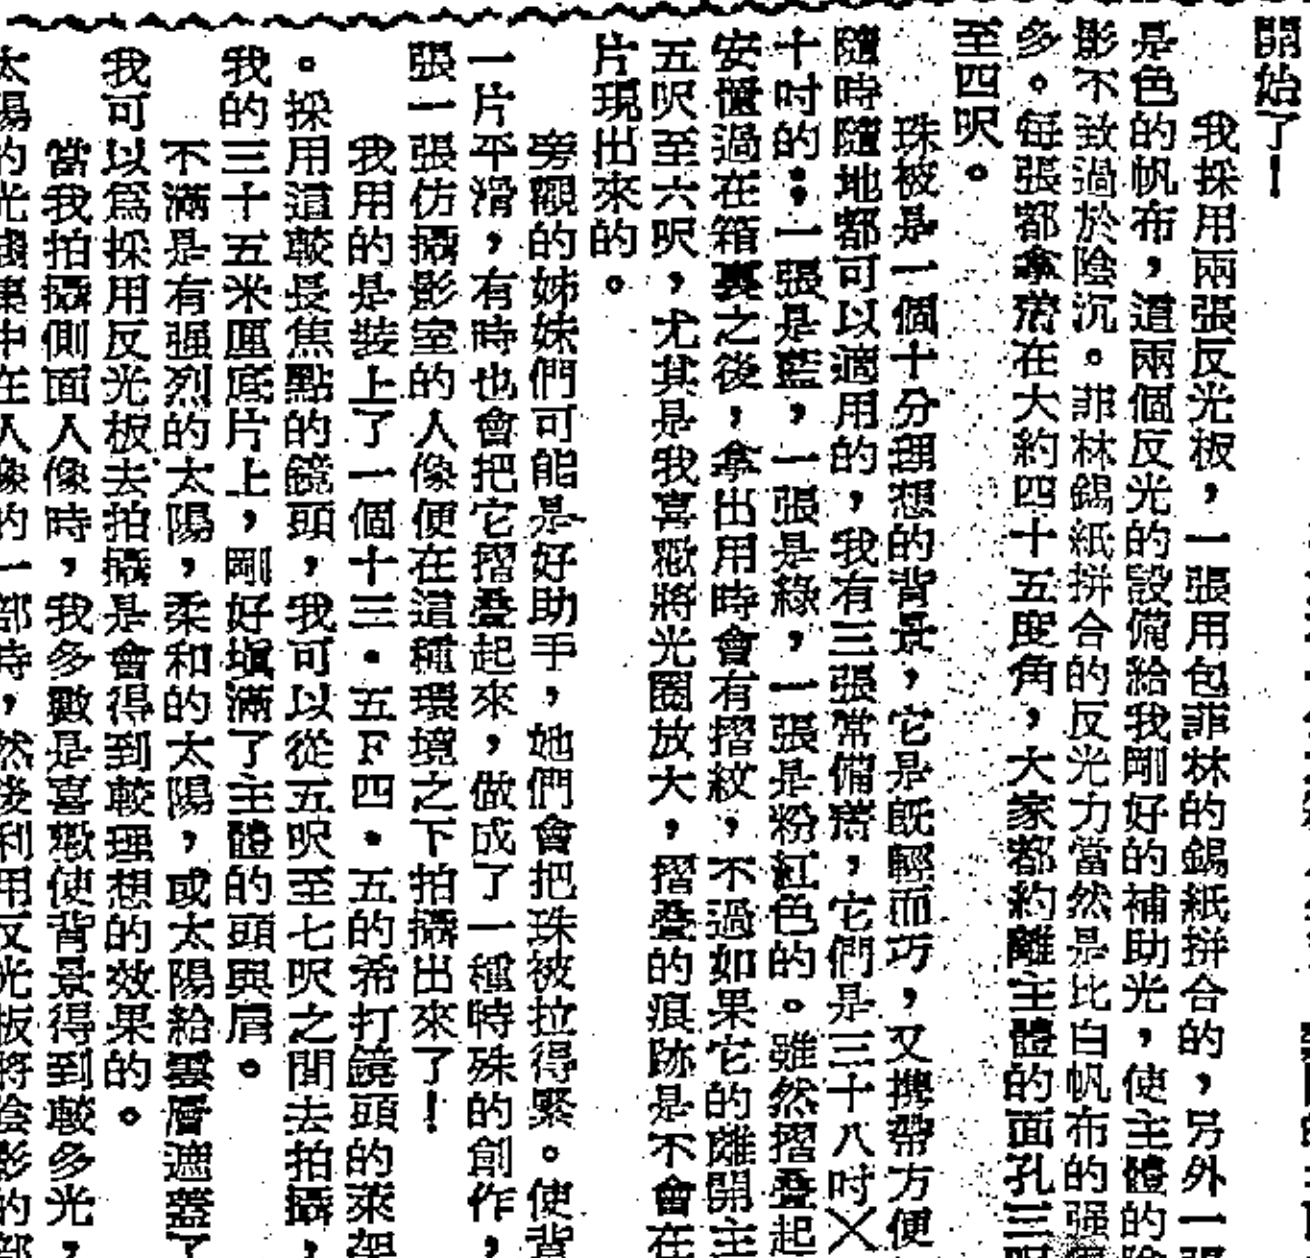 開始了！
我採用兩張反光板，一張用包菲林的錫紙拼合的，另外一張
是色的帆布，這兩個反光的設備給我剛好的補助光，使主體的陰
影不致過於陰沉。菲林錫紙拼合的反光力當然是比白帆布的强
多。每張都拿來在大約四十五度角，大家都約離主體的面孔三呎
至四呎。
珠被是一個十分理想的背景，它是既輕而巧，又携帶方便
隨時隨地都可以適用的，我有三張常備着，它們是三十八吋×
十吋的：一張是藍，一張是綠，一張是粉紅色的。雖然摺疊起
安慣過在箱裏之後，拿出用時會有摺紋，不過如果它的離開主
五呎至六呎，尤其是我喜歡將光圈放大，摺疊的痕跡是不會在
片現出來的。
旁觀的姊妹們可能是好助手，她們會把珠被拉得緊。使背
一片平滑，有時也會把它摺疊起來，做成了一種特殊的創作，
張一張仿攝影室的人像便在這種環境之下拍攝出來了！
我用的是裝上了一個十三．五F四．五的希打鏡頭的萊架
。採用這較長焦點的鏡頭，我可以從五呎至七呎之間去拍攝，
我的三十五米厘底片上，剛好塡滿了主體的頭與肩。
不滿是有强烈的太陽，柔和的太陽，或太陽給雲層遮蓋了
我可以爲採用反光板去拍攝是會得到較理想的效果的。
當我拍攝側面人像時，我多數是喜歡使背景得到較多光，
太陽的光綫集中在人像的一部時，然後利用反光板將陰影的部